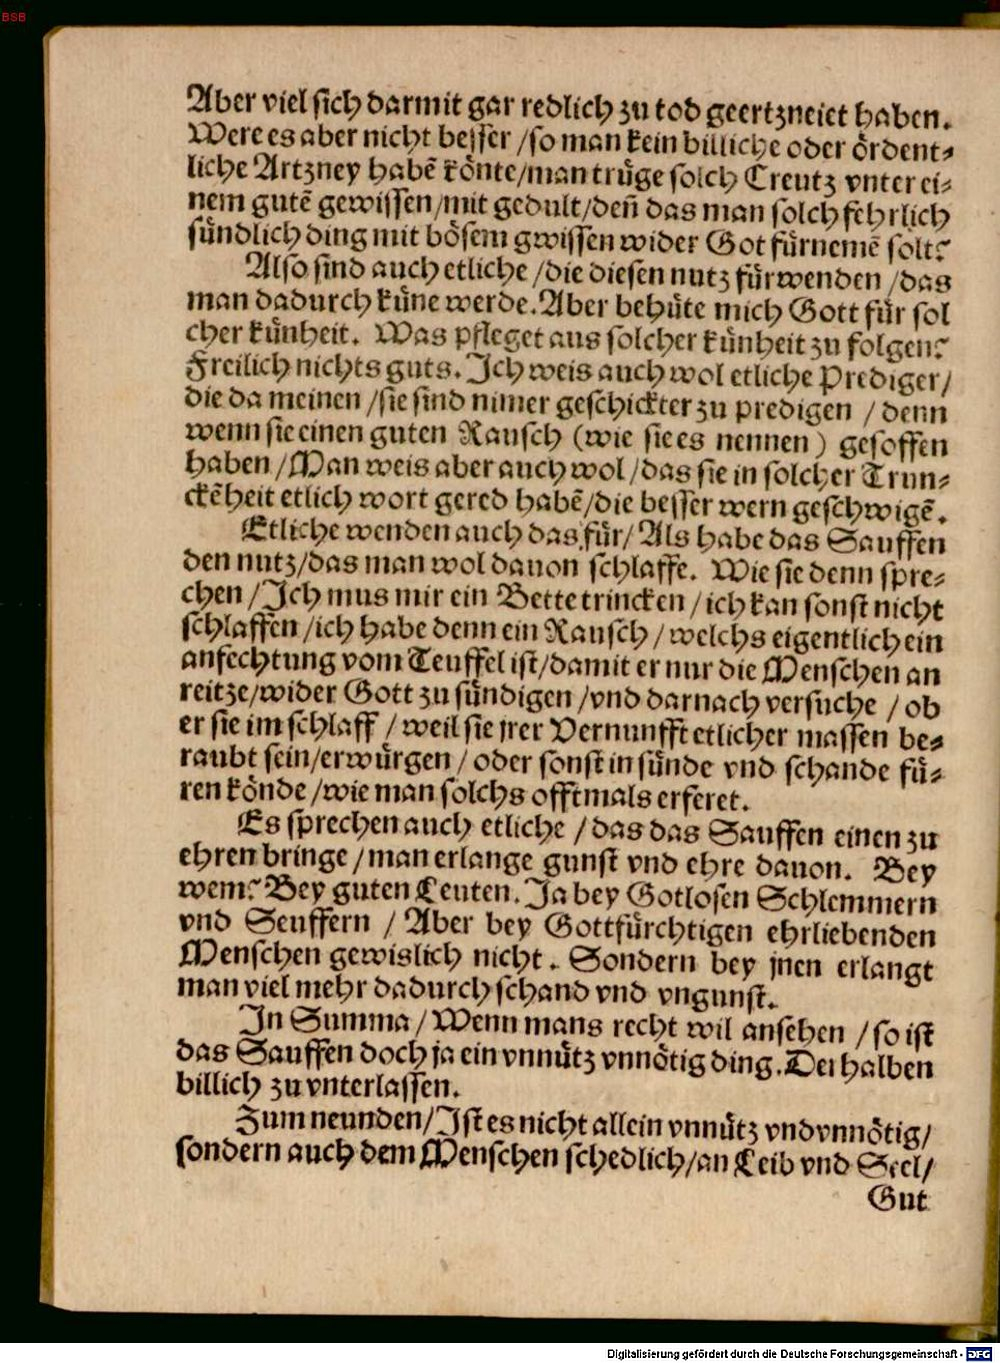 BSB
Aber viel sich darmit gar redlich zu tod geertzneiet haben.
Were es aber nicht besser /so man kein billiche oder oͤrdent⸗
liche Artzney habẽ koͤnte/man truͤge solch Creutz vnter ei⸗
nem gutẽ gewissen/mit gedult/deñ das man solch fehrlich
suͤndlich ding mit boͤsem gwissen wider Got fuͤrnemẽ solt?
Also sind auch etliche /die diesen nutz fuͤrwenden /das
man dadurch kuͤne werde. Aber behuͤte mich Gott fuͤr sol
cher kuͤnheit. Was pfleget aus solcher kuͤnheit zu folgen?
Freilich nichts guts. Ich weis auch wol etliche Prediger/
die da meinen /sie sind nimer geschickter zu predigen / denn
wenn sie einen guten Rausch (wie sie es nennen) gesoffen
haben /Man weis aber auch wol /das sie in solcher Trun⸗
ckẽheit etlich wort gered habẽ/die besser wern geschwigẽ.
Etliche wenden auch das fuͤr/ Als habe das Sauffen
den nutz/das man wol dauon schlaffe. Wie sie denn spre⸗
chen /Ich mus mir ein Bette trincken /ich kan sonst nicht
schlaffen /ich habe denn ein Rausch /welchs eigentlich ein
anfechtung vom Teuffel ist/damit er nur die Menschen an
reitze/wider Gott zu suͤndigen /vnd darnach versuche / ob
er sie im schlaff / weil sie jrer Vernunfft etlicher massen be⸗
raubt sein/erwuͤrgen / oder sonst in suͤnde vnd schande fuͤ⸗
ren koͤnde /wie man solchs offtmals erferet.
Es sprechen auch etliche /das das Sauffen einen zu
ehren bringe /man erlange gunst vnd ehre dauon. Bey
wem? Bey guten Leuten. Ja bey Gotlosen Schlemmern
vnd Seuffern / Aber bey Gottfuͤrchtigen ehrliebenden
Menschen gewislich nicht. Sondern bey jnen erlangt
man viel mehr dadurch schand vnd vngunst.
In Summa / Wenn mans recht wil ansehen /so ist
das Sauffen doch ja ein vnnuͤtz vnnoͤtig ding. Derhalben
billich zu vnterlassen.
Zum neunden/Ist es nicht allein vnnuͤtz vnd vnnoͤtig/
sondern auch dem Menschen schedlich/an Leib vnd Seel/
Gut
Digitalisierung gefördert durch die Deutsche Forschungsgemeinschaft - DFG